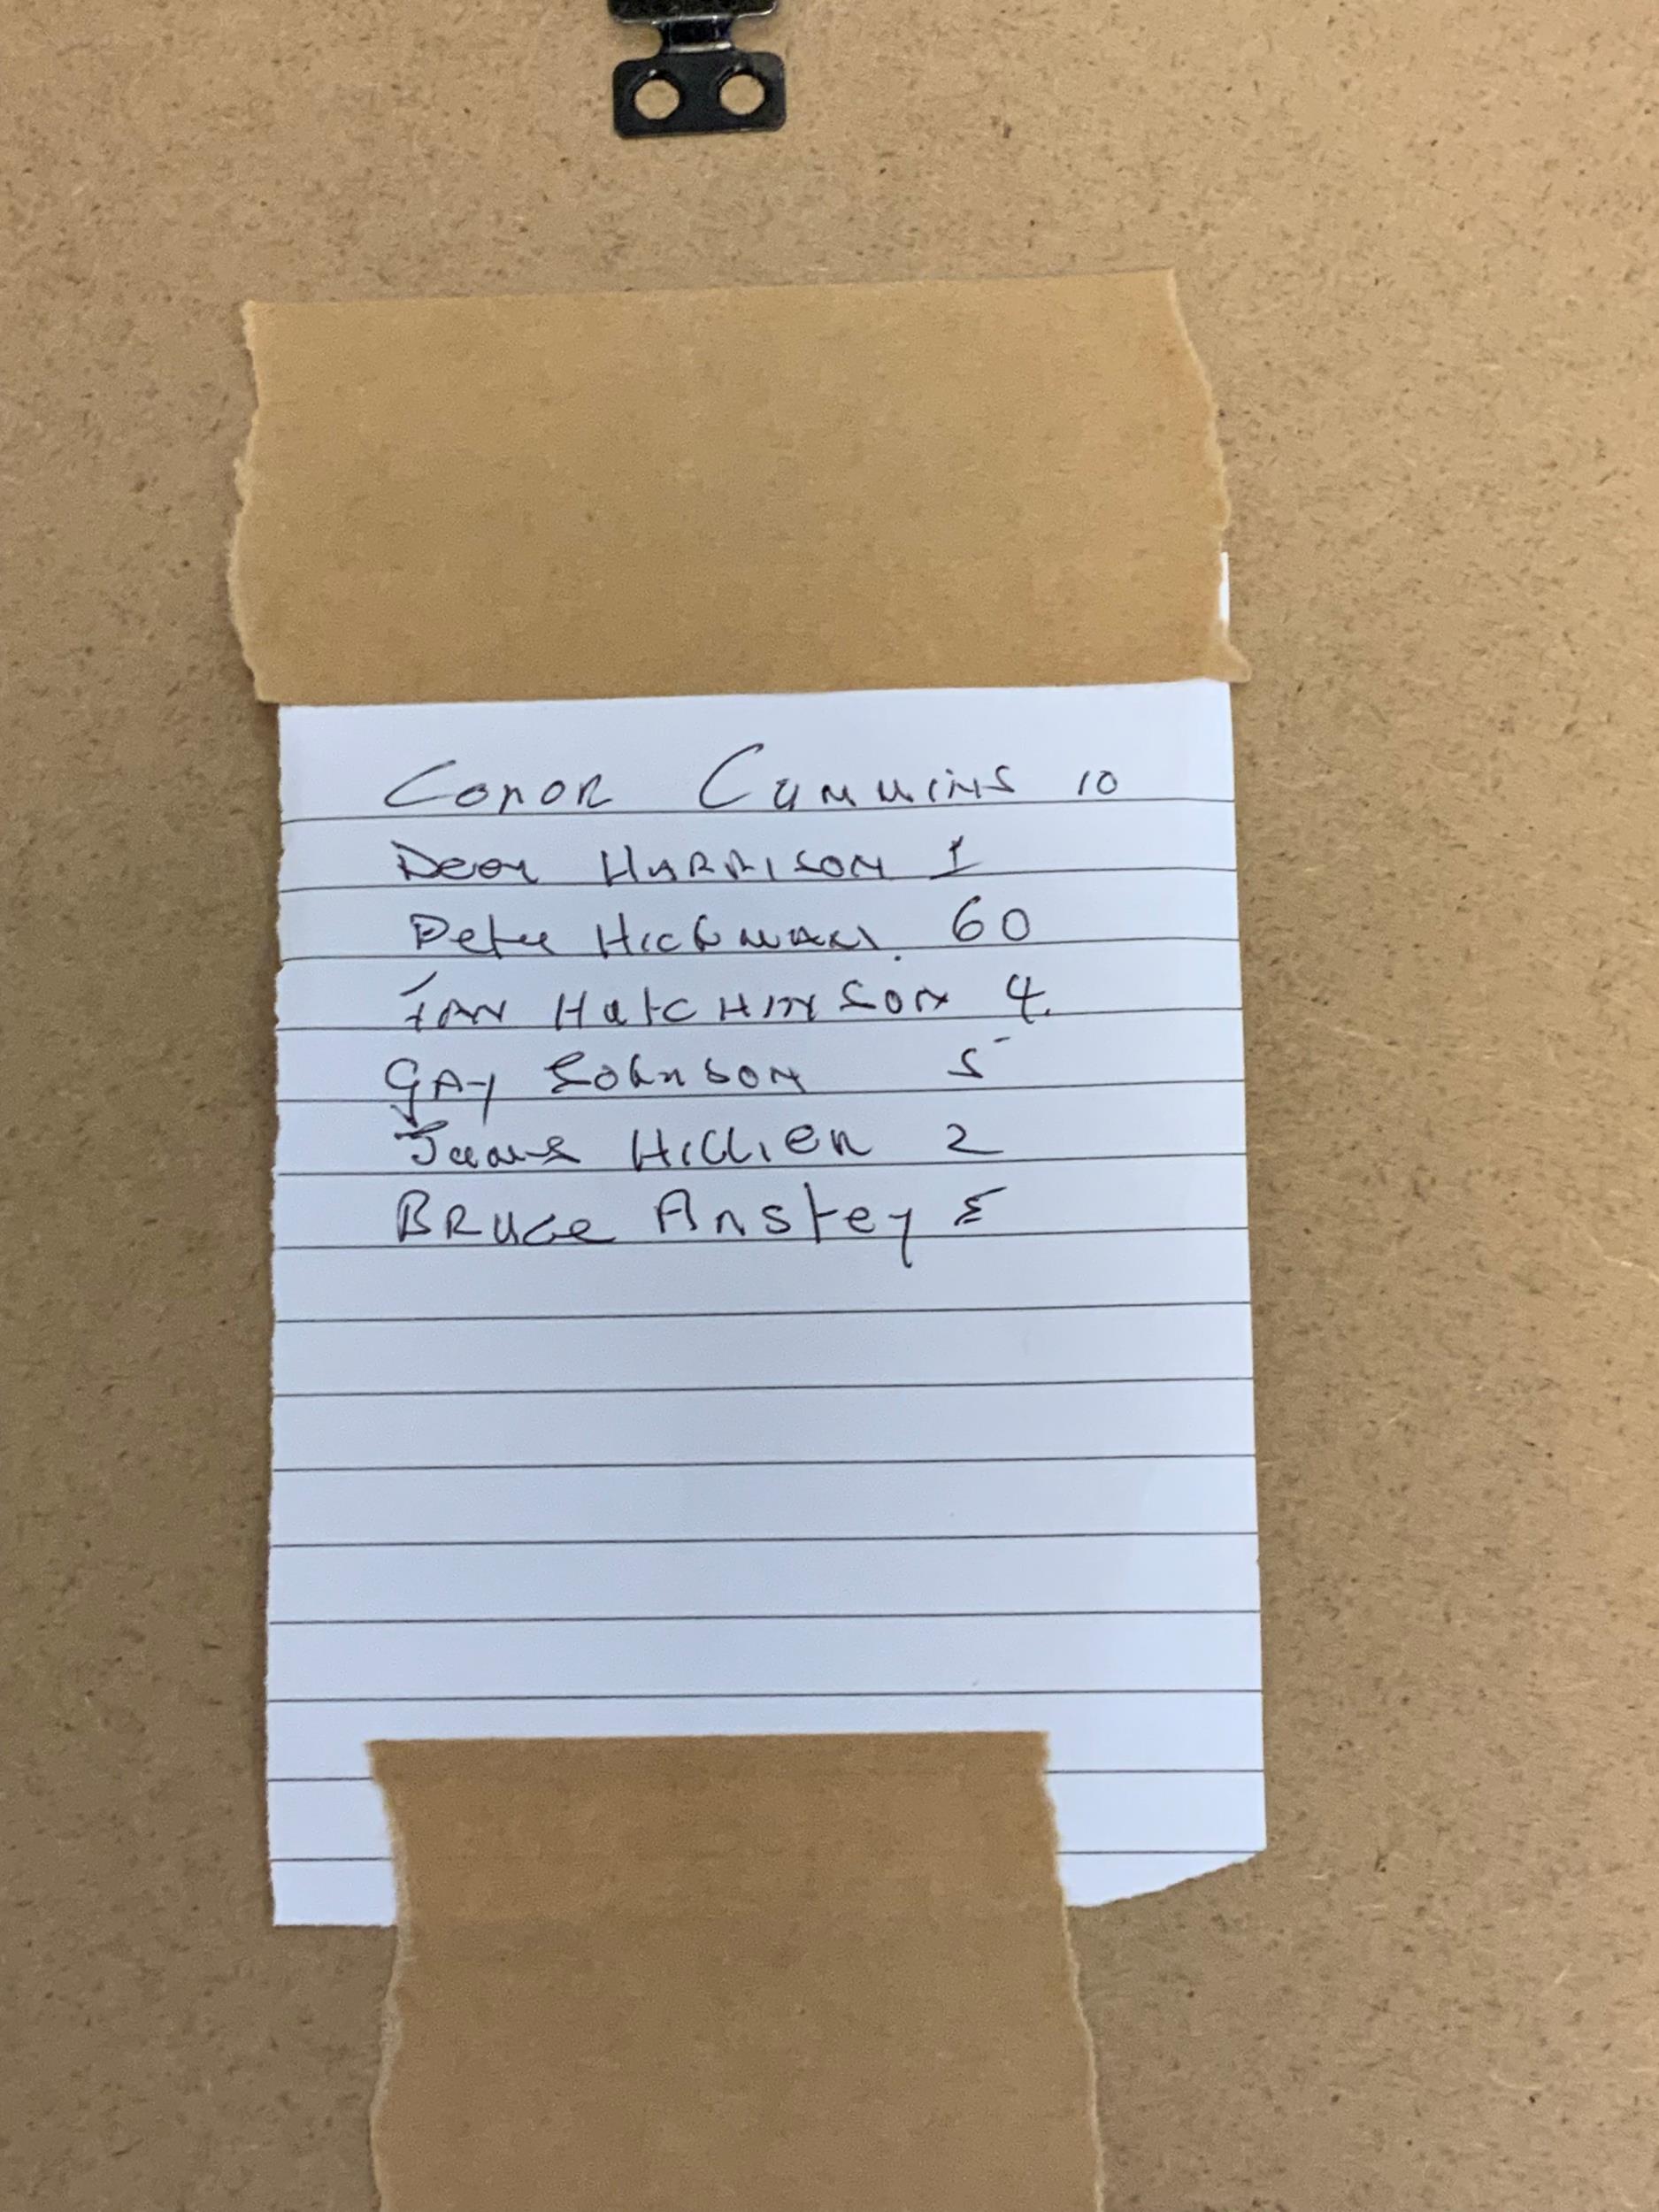 Conor Cummins 10
Dean HARRISON 1
Peter Hickman. 60
IAN HutcHINSON 4.
GAy Johnson 5
James Hillier 2
BRuce Anstey 5